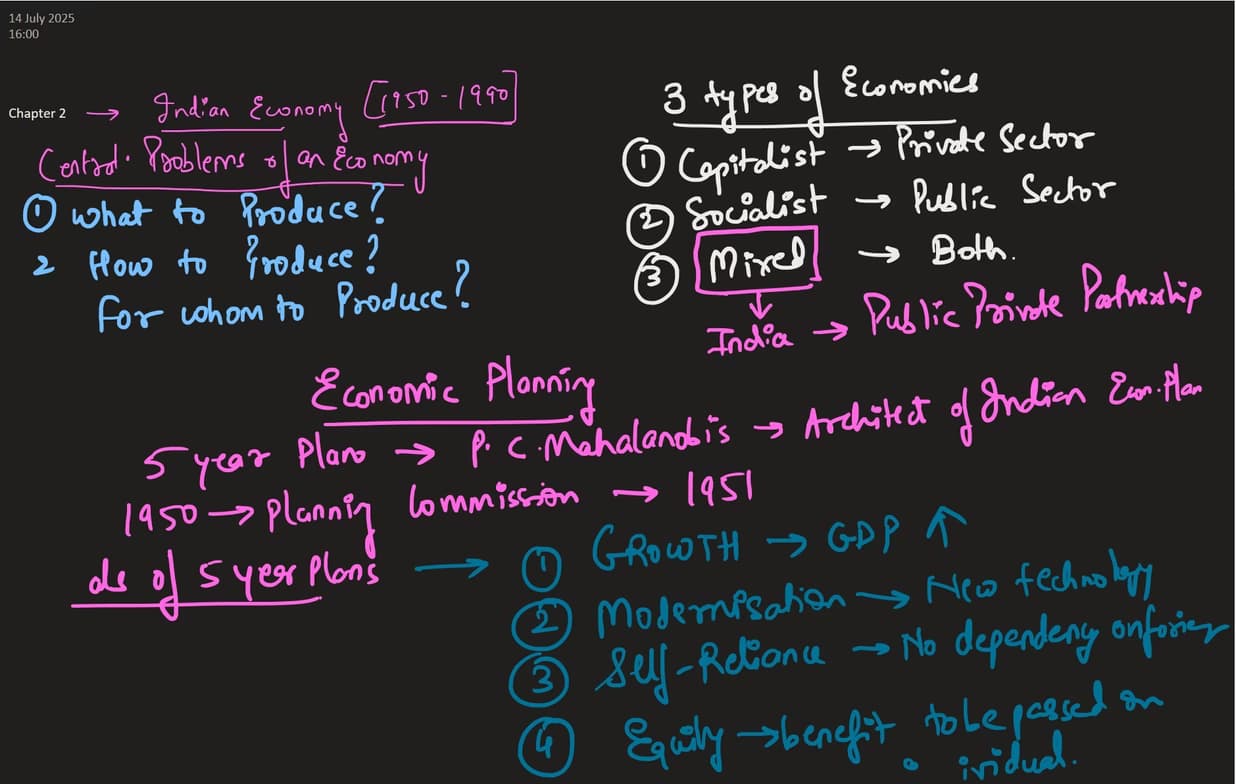 14 July 2025
16:00
Chapter 2 → Indian Economy [1950 - 1990]
Central Problems of an Economy
① what to Produce?
2 How to Produce?
For whom to Produce?
3 types of Economies
① Capitalist → Private Sector
② Socialist → Public Sector
③ Mixed → Both.
India → Public Private Partnership
Economic Planning
5 year Plan → P. C. Mahalanobis → Architect of Indian Econ. Plan
1950 → Planning Commission → 1951
of 5 year Plans → ① GROWTH → GDP ↑
② Modernisation → New technology
③ Self-Reliance → No dependency on
④ Equity → benefit to be passed on